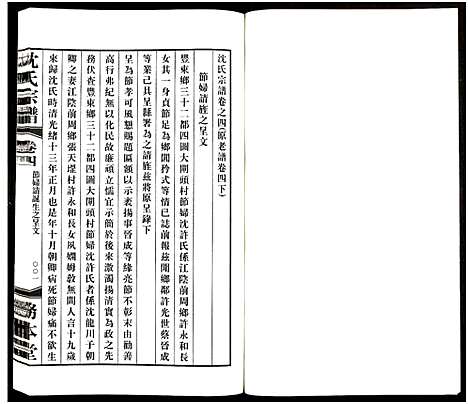 沈氏宗譜卷之四(原老譜卷四下)
節婦請旌之呈文
豐東鄉三十二都四圖大開頭村節婦沈許氏係江陰前周鄉許永和長
女其一身貞節足為鄉閭矜式等情已誌前報茲開鄉鄰許光世蔡晉成
等業已具呈縣署為之請旌茲將原呈錄下
呈為節孝可風懇賜題匾額以示表揚事晉成等緣亮節不彰末由勸善
高行弗紀無以化民故廉頑立懦官紳挽之於後來激濁揚清實為政之先
務伏查豐東鄉三十二都四圖大開頭村節婦沈許氏者係沈龍川子朝
卿之妻江陰前周鄉張天墅村許永和長女夙嫻姆教無間人言十九歲
來歸沈氏時清光緒十三年正月也是年十月朝卿病死節婦痛不欲生
沈氏宗譜
卷四
節婦請誕生之呈文
〇〇一
務本堂